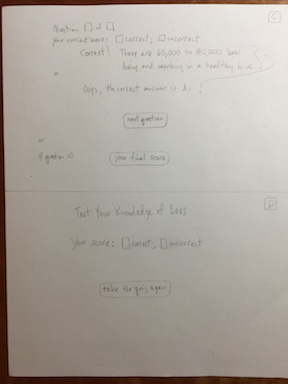 C
Question □ of □
your current score: □ correct, □ incorrect
Correct! There are 60,000 to 80,000 bees
living and working in a healthy hive
or
Oops, the correct answer is d.
next question
or
your final score
D
Test Your Knowledge of Bees
Your score: □ correct, □ incorrect
take the quiz again